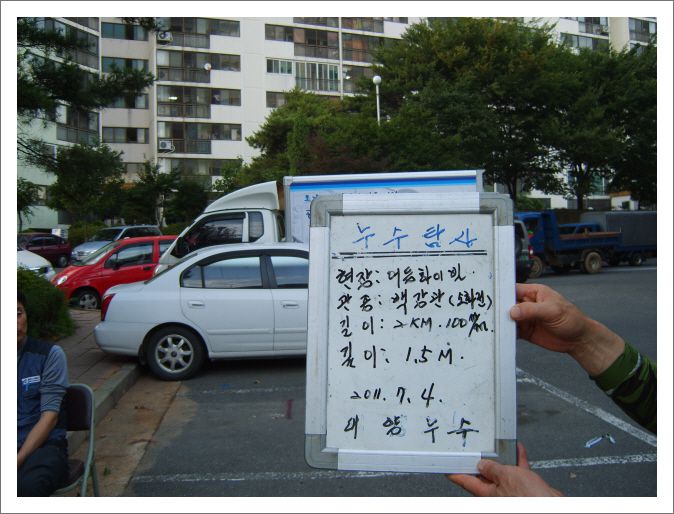 누수탐사
현장: 대응하이빌
관종: 백강관 (소화전)
길이: 2KM. 100mm.
깊이: 1.5M.
2011. 7. 4.
태양누수